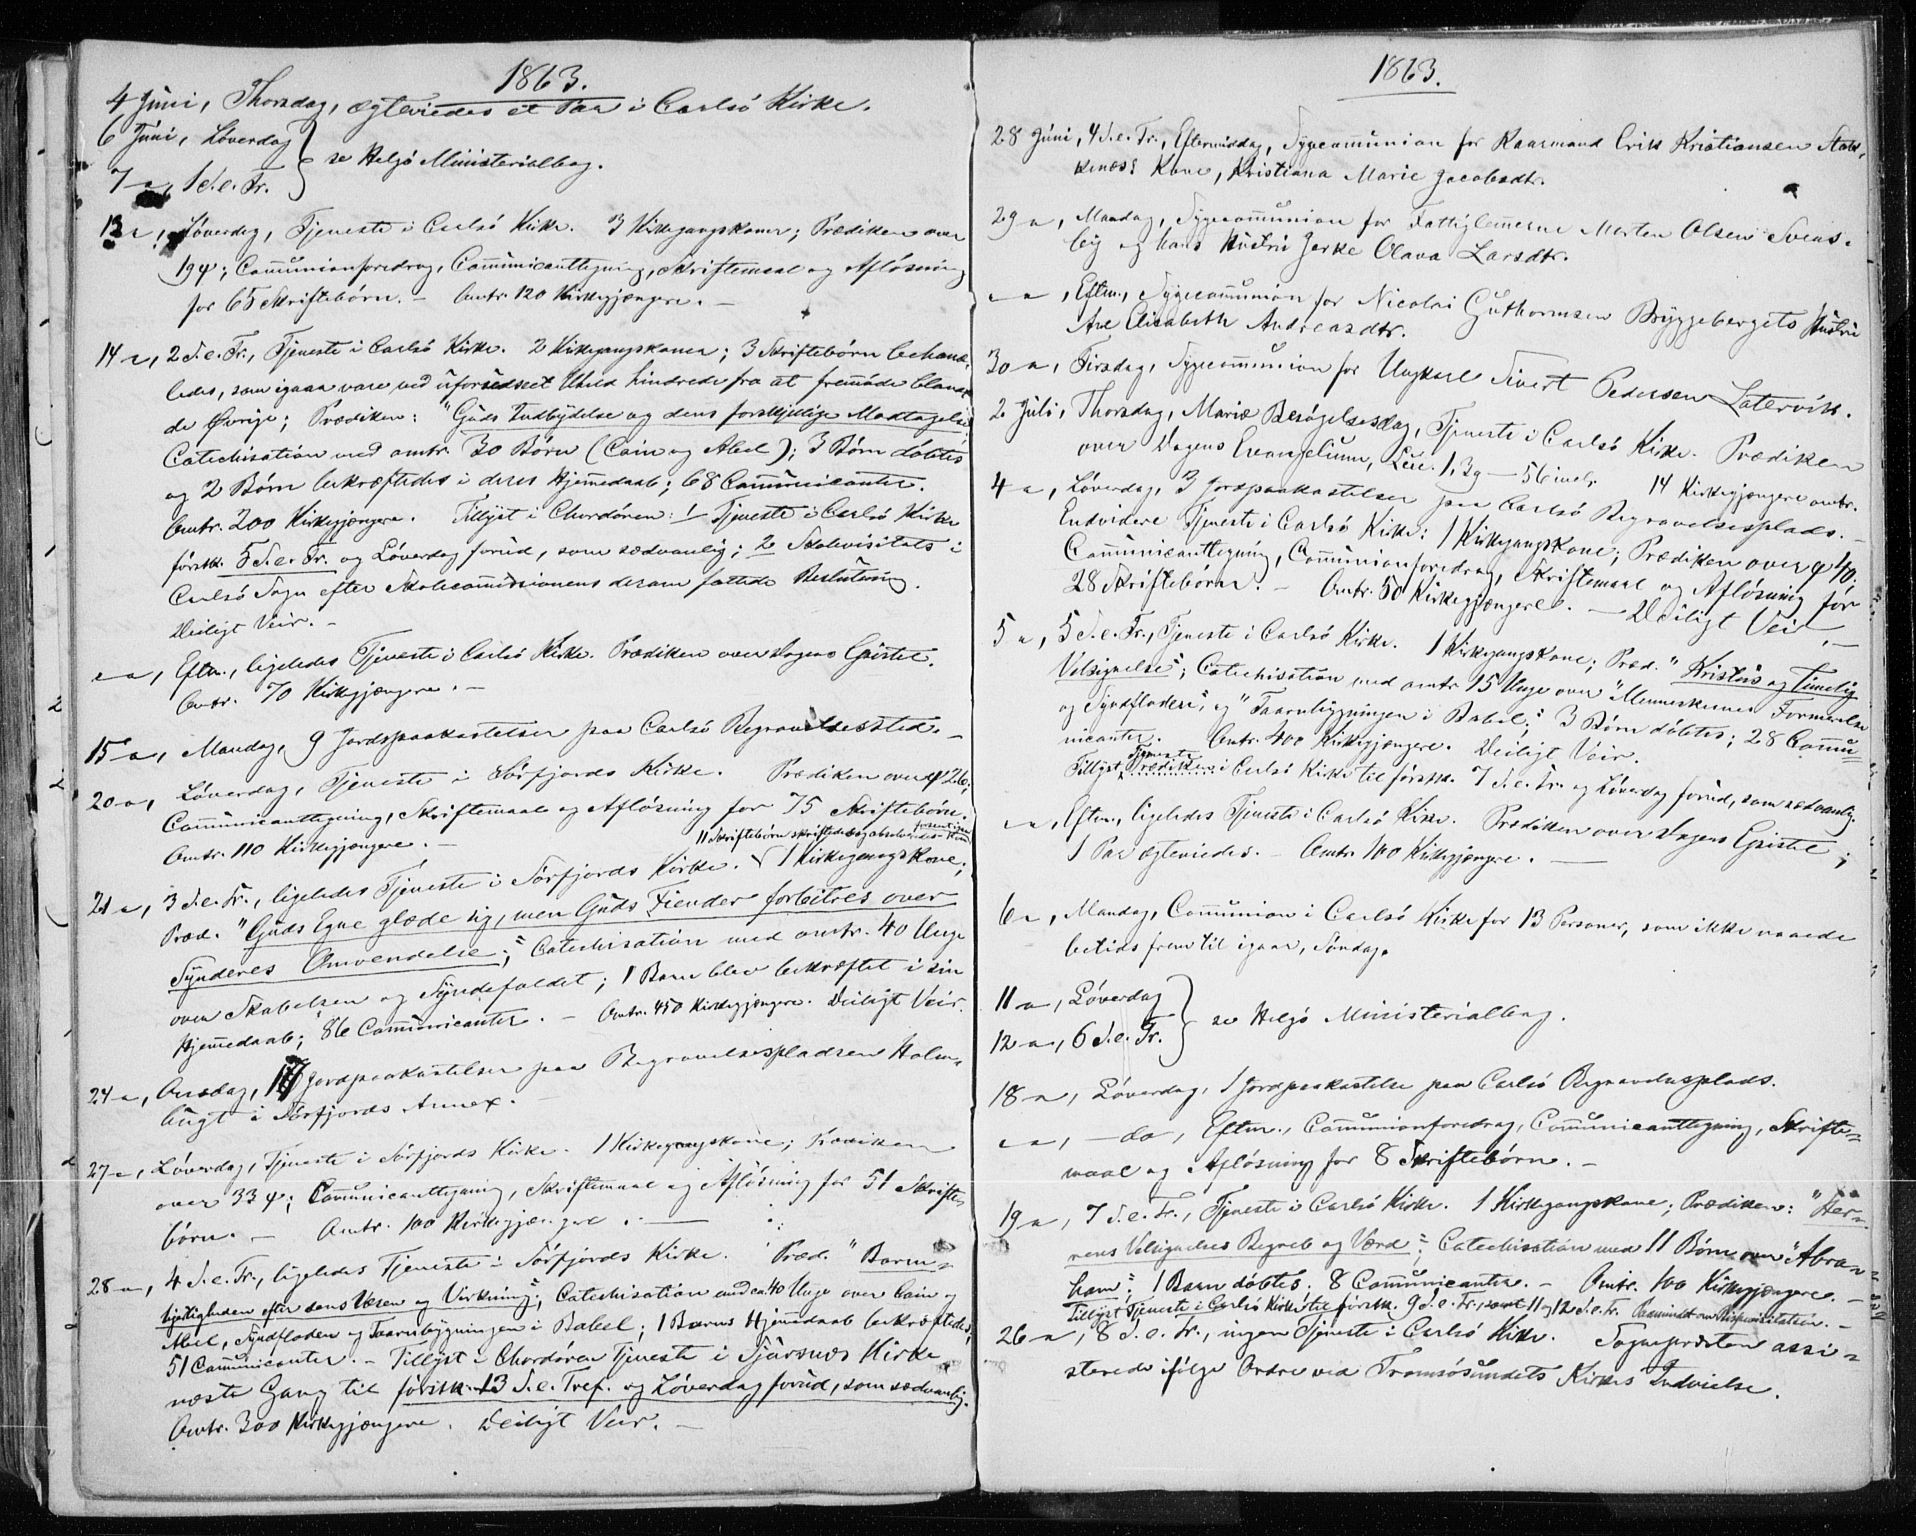 1863.
4 Juni, Thorsdag, ægteviedes et Par i Carlsö Kirke.
6 Juni, Löverdag
7 –, 1 S. e. Tr.
se Helgö Ministerialbog.
13 –, Löverdag, Tjeneste i Carlsö Kirke. 3 Kirkegangskoner; Prædiken over
19ψ; Communionforedrag, Communicanttegning, Skriftemaal og Aflösning
for 65 Skriftebörn. – Omtr. 120 Kirkegjængere. –
14 –, 2 S. e. Tr., Tjeneste i Carlsö Kirke. 2 Kirkegangskoner; 3 Skriftebörn behand-
ledes, som igaar vare ved uforudseet Uheld hindrede fra at fremmöde blandt
de Övrige; Prædiken: "Guds Indbydelse og dens forskjellige Modtagelse"
Catechisation med omtr. 30 Börn (Cain og Abel); 3 Börn döbtes
og 2 Börn bekræftedes i deres Hjemmedaab; 68 Communicanter.
Omtr. 200 Kirkegjængere. Tillyst i Chordören: 1 Tjeneste i Carlsö Kirke
förstk. 5 S. e. Tr. og Löverdag forud, som sædvanlig; 2 Skolevisitats i
Carlsö Sogn efter Skolecommissionens derom fattede Beslutning.
Deiligt Veir. –
– –, Eftm., ligeledes Tjeneste i Carlsö Kirke. Prædiken over Dagens Epistel.
Omtr. 70 Kirkegjængere. –
15 –, Mandag, 9 Jordspaakastelser paa Carlsö Begravelsessted. –
20 –, Löverdag, Tjeneste i Sörfjords Kirke. Prædiken over ψ 26;
Communicanttegning, Skriftemaal og Aflösning for 75 Skriftebörn.
Omtr. 110 Kirkegjængere. –
11 Skriftebörn skriftedes og absolveredes
21 –, 3 S. e. Tr., ligeledes Tjeneste i Sörfjords Kirke. 1 Kirkegangskone;
Præd. "Guds Egne glæde sig, men Guds Fiender forbitres over
Synderes Omvendelse"; Catechisation med omtr. 40 Unge
over Skabelsen og Syndefaldet; 1 Barn blev bekræftet i sin
Hjemmedaab; 86 Communicanter. – Omtr. 450 Kirkegjængere. Deiligt Veir.
24 –, Onsdag, 17 Jordpaakastelser paa Begravelsespladsen Holm-
bugt i Sörfjords Annex. –
27 –, Löverdag, Tjeneste i Sörfjords Kirke. 1 Kirkegangskone; Prædiken
over 33 ψ; Communicanttegning, Skriftemaal og Aflösning for 51 Skrifte-
börn. – Omtr. 100 Kirkegjængere. –
28 –, 4 S. e. Tr., ligeledes Tjeneste i Sörfjords Kirke. Præd. "Barm-
hjertigheden efter dens Væsen og Virkning"; Catechisation med ca. 40 Unge over Cain og
Abel, Syndfloden og Taarnbygningen i Babel; 1 Barns Hjemmedaab bekræftedes;
51 Communicanter. – Tillyst i Chordören Tjeneste i Sjursnæs Kirke
næste Gang til förstk. 13 S. e. Tref. og Löverdag forud, som sædvanlig.
Omtr. 300 Kirkegjængere. Deiligt Veir. –
1863.
28 Juni, 4 S. e. Tr., Eftermiddag, Sygecommunion for Kaarmand Erik Kristiansen Stak-
kenæs's Kone, Kristiana Marie Jacobsdtr.
29 –, Mandag, Sygecommunion for Fattiglemmerne Morten Olsen Svens-
bÿ og hans Hustru Gjerke Olava Larsdtr.
– –, Eftm., Sygecommunion for Nicolai Guthormsen Bryggebergets Hustru
Ane Elisabeth Andreasdtr.
30 –, Tirsdag, Sygecommunion for Ungkarl Sivert Pedersen Latervik.
2 Juli, Thorsdag, Mariæ Besögelsesdag, Tjeneste i Carlsö Kirke. Prædiken
over Dagens Evangelium, Luc. 1, 39–56 incl. 14 Kirkegjængere omtr.
4 –, Löverdag, 3 Jordpaakastelser paa Carlsö Begravelsesplads. –
Endvidere Tjeneste i Carlsö Kirke: 1 Kirkegangskone; Prædiken over ψ 40.
Communicanttegning, Communionforedrag, Skriftemaal og Aflösning for
28 Skriftebörn. – Omtr. 50 Kirkegjængere. – Deiligt Veir. –
5 –, 5 S. e. Tr., Tjeneste i Carlsö Kirke. 1 Kirkegangskone; Præd. "Kristus og timelig
Velsignelse"; Catechisation med omtr. 15 Unge over "Menneskenes Formerelse
og Syndfloden", og "Taarnbygningen i Babel"; 3 Börn döbtes; 28 Commu-
nicanter. Omtr. 400 Kirkegjængere. Deiligt Veir.
Tjeneste
Tillyst Prædiken i Carlsö Kirke til förstk. 7 S. e. Tr. og Löverdag forud, som sædvanlig.
– –, Eftm., ligeledes Tjeneste i Carlsö Kirke. Prædiken over Dagens Epistel;
1 Par ægteviedes. – Omtr. 100 Kirkegjængere. –
6 –, Mandag, Communion i Carlsö Kirke for 13 Personer, som ikke naaede
betids frem til igaar, Söndag.
11 –, Löverdag
12 –, 6 S. e. Tr.
se Helgö Ministerialbog.
18 –, Löverdag, 1 Jordpaakastelse paa Carlsö Begravelsesplads.
– –, – do, Eftm., Communionforedrag, Communicanttegning, Skrifte-
maal og Aflösning for 8 Skriftebörn. –
19 –, 7 S. e. Tr., Tjeneste i Carlsö Kirke. 1 Kirkegangskone; Prædiken: "Her-
rens Velsignelses Begreb og Værd"; Catechisation med 11 Börn over "Abra-
ham"; 1 Barn döbtes; 8 Communicanter. – Omtr. 100 Kirkegjængere. –
Tillyst Tjeneste i Carlsö Kirke til förstk. 9 S. e. Tr., samt 11 og 12 S. e. Tr.
26 –, 8 S. e. Tr., ingen Tjeneste i Carlsö Kirke. Sognepræsten assi-
sterede ifölge Ordre ved Tromsösundets Kirkes Indvielse.